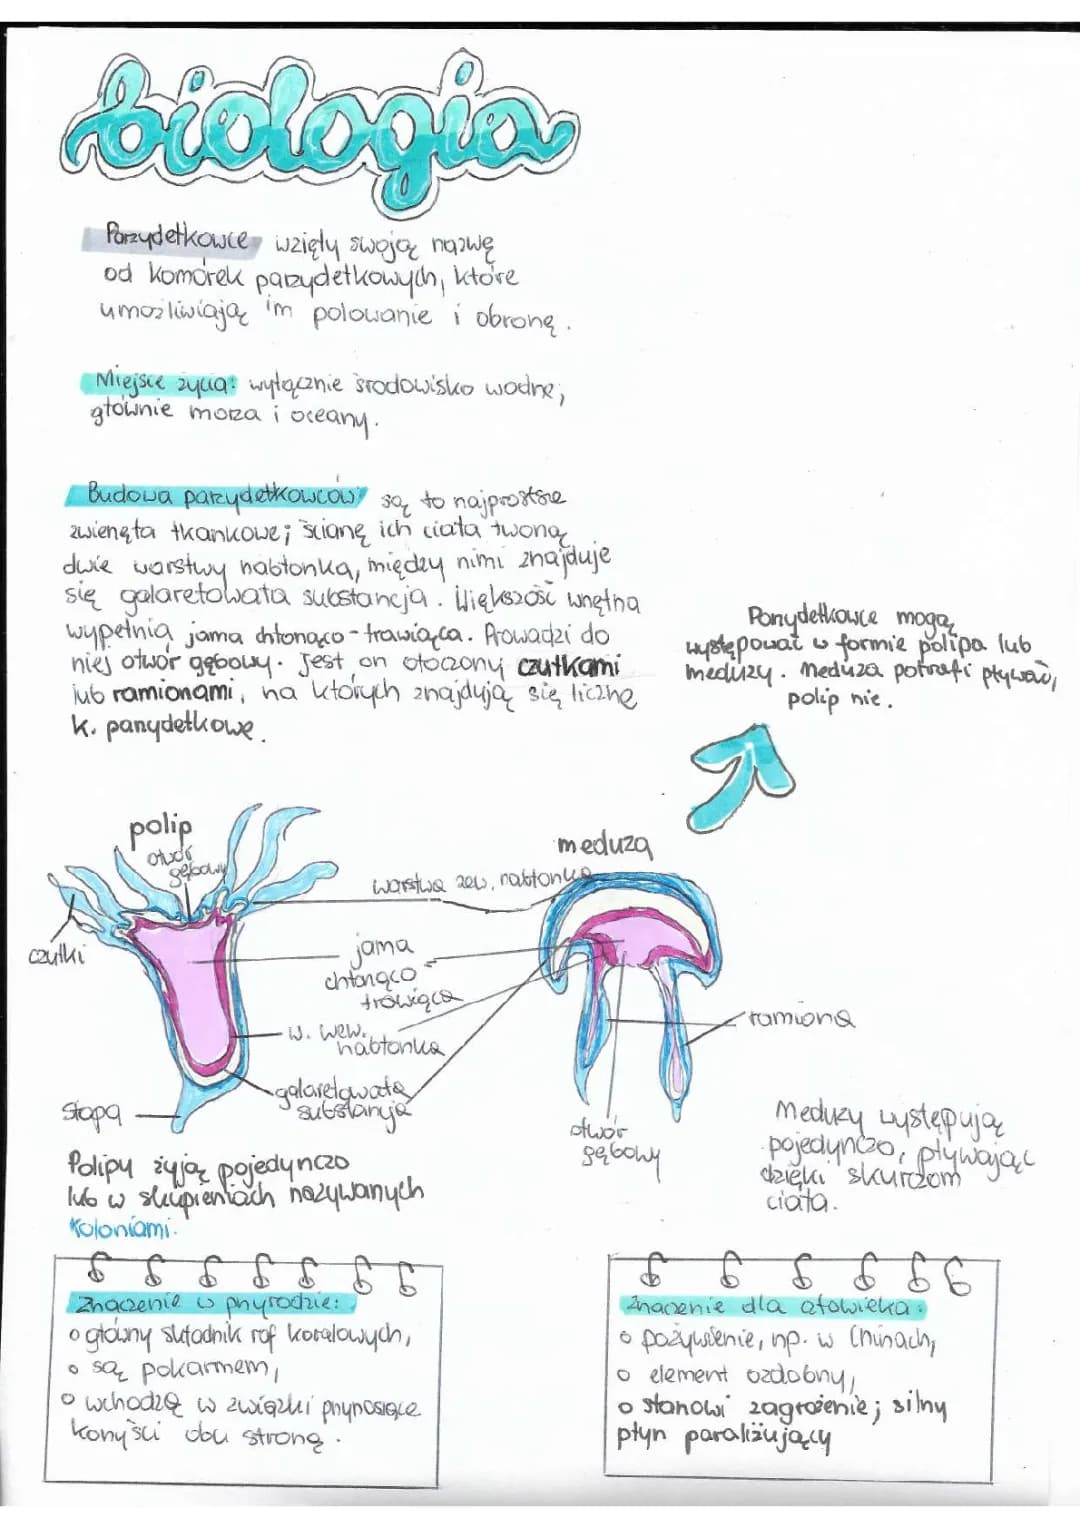 biologia
Parzydełkowce wzięły swoją nazwę
od komórek parzydełkowych, które
umożliwiają im polowanie i obronę.
Miejsce życia: wyłącznie środowisko wodne,
głównie morza i oceany.
Budowa parzydełkowców są to najprostsze
zwierzęta tkankowe; ścianę ich ciała tworzą
dwie warstwy nabłonka, między nimi znajduje
się galaretowata substancja. Większość wnętrza
wypełnia jama chłonąco-trawiąca. Prowadzi do
niej otwór gębowy. Jest on otoczony czułkami
lub ramionami, na których znajdują się liczne
k. parzydełkowe.
Parzydełkowce mogą
występować w formie polipa lub
meduzy. Meduza potrafi pływać,
polip nie.
polip
otwór
gębowy
czułki
stopa
meduza
warstwa zew. nabłonka
jama
chłonąco
trawiąca
w. wew.
nabłonka
galaretowata
substancja
ramiona
otwór
gębowy
Polipy żyją pojedynczo
lub w skupieniach nazywanych
koloniami.
Meduzy występują
pojedynczo, pływając
dzięki skurczom
ciała.
Znaczenie w przyrodzie:
o główny składnik raf koralowych,
o są pokarmem,
o wchodzą w związki przynoszące
korzyści obu stroną.
Znaczenie dla człowieka:
o pożywienie, np. w Chinach,
o element ozdobny,
o stanowi zagrożenie; silny
płyn paraliżujący